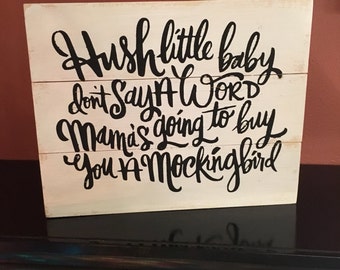 Hush little baby
don't SAY A WORD
Mama's going to buy
you A Mockingbird